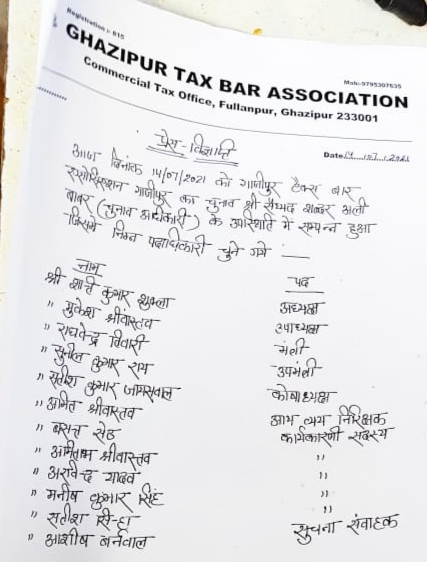 Registration :- 815
Mob:-9795397635
GHAZIPUR TAX BAR ASSOCIATION
Commercial Tax Office, Fullanpur, Ghazipur 233001
Date 14/07/2021
प्रेस-विज्ञप्ति
आज दिनांक 14/07/2021 को गाजीपुर टैक्स बार
एसोसिएशन गाजीपुर का चुनाव श्री सैय्यद शब्बर अली
बाबर (चुनाव अधिकारी) के उपस्थिति में सम्पन्न हुआ
जिसमें निम्न पदाधिकारी चुने गये :—
नाम पद
श्री शान्ति कुमार शुक्ला अध्यक्ष
" मुकेश श्रीवास्तव उपाध्यक्ष
" राघवेन्द्र तिवारी मंत्री
" सुनील कुमार राय उपमंत्री
" सतीश कुमार जायसवाल कोषाध्यक्ष
" अमित श्रीवास्तव आय व्यय निरिक्षक
" बसन्त सेठ कार्यकारणी सदस्य
" अमिताभ श्रीवास्तव "
" अरविन्द यादव "
" मनीष कुमार सिंह "
" सतीश सिन्हा "
" आशीष बर्नवाल सुचना संवाहक